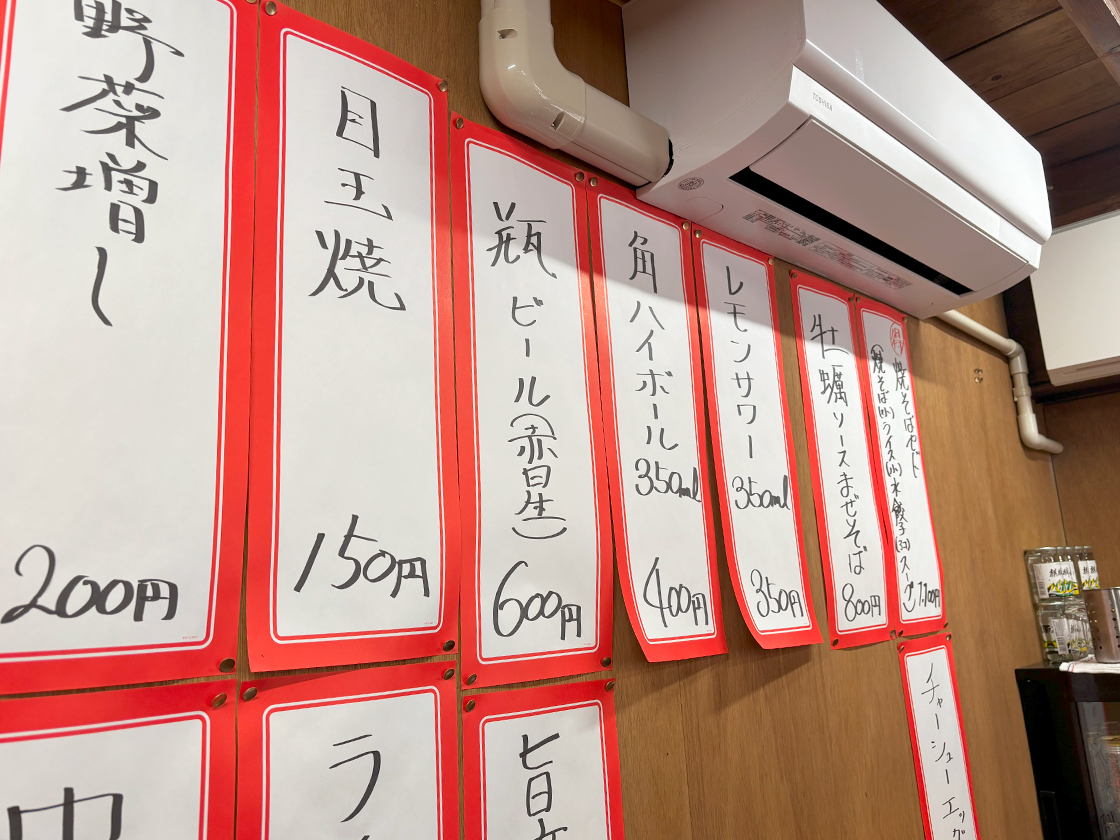 野菜増し
200円
目玉焼
150円
瓶ビール(赤星)
600円
角ハイボール
350ml
400円
レモンサワー
350ml
350円
牡蠣ソースまぜそば
800円
焼そばセット
(焼そば(小)ライス(小)水餃子(3コ)スープ)
チャーシューエッグ
TOSHIBA
中
ラ